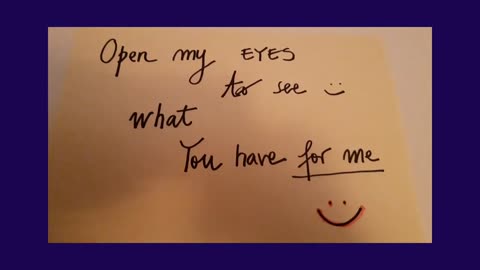 Open my EYES
to see :)
what
You have for me